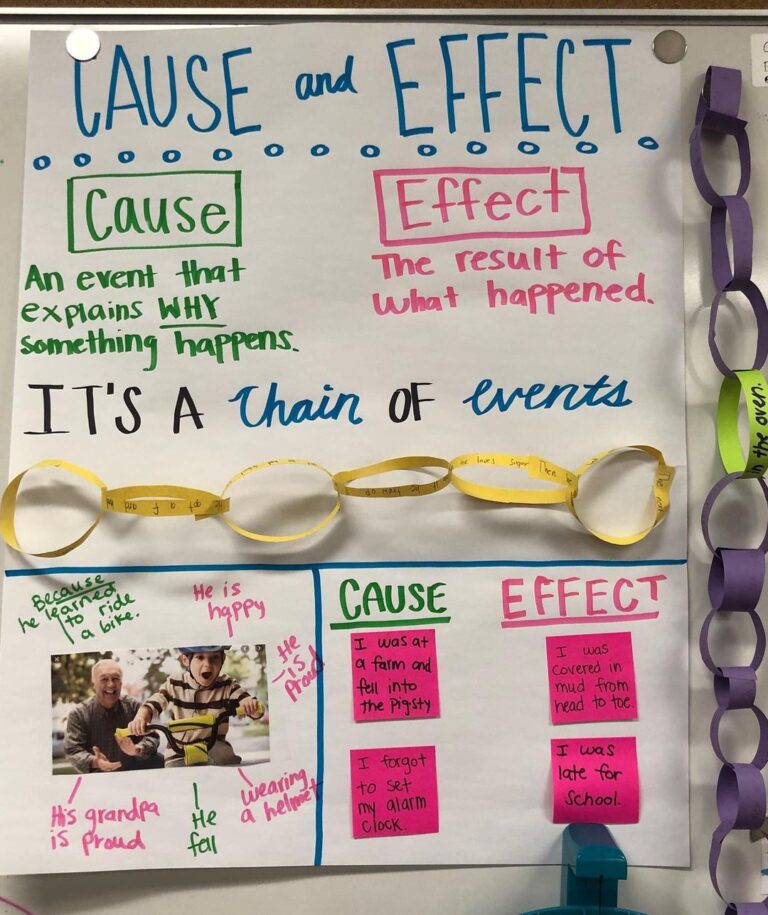 CAUSE and EFFECT
Cause
An event that
explains WHY
something happens.
Effect
The result of
what happened.
IT'S A Chain OF events
he loves sugar Then
in the oven.
Because
he learned
to ride
a bike.
He is
happy
He
is
proud
His grandpa
is proud
He
fell
wearing
a helmet
CAUSE
I was at
a farm and
fell into
the Pigsty
I forgot
to set
my alarm
clock.
EFFECT
I was
covered in
mud from
head to toe.
I was
late for
School.